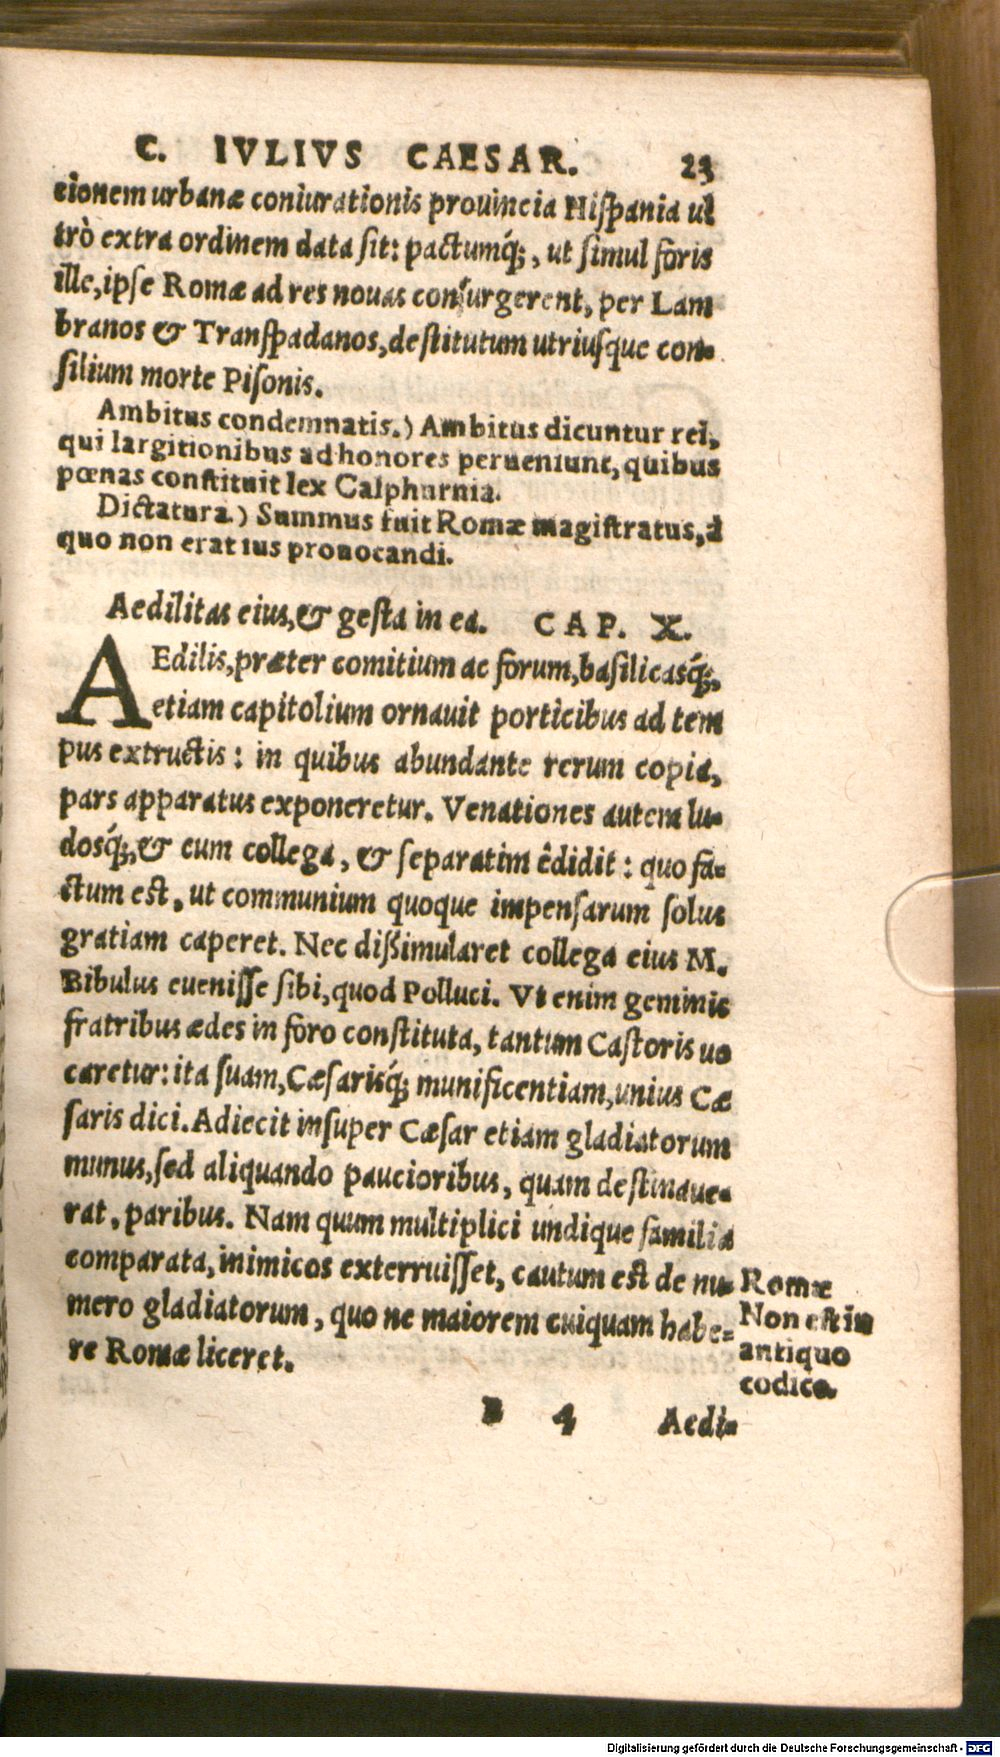 C. IVLIVS CAESAR. 23
tionem urbanæ coniurationis prouincia Hiſpania ul
trò extra ordinem data ſit: pactumq́;, ut ſimul foris
ille, ipſe Romæ ad res nouas conſurgerent, per Lam
branos & Tranſpadanos, deſtitutum utriuſque con-
ſilium morte Piſonis.
Ambitus condemnatis.) Ambitus dicuntur rei,
qui largitionibus ad honores perueniunt, quibus
pœnas conſtituit lex Calphurnia.
Dictatura.) Summus fuit Romæ magiſtratus, à
quo non erat ius prouocandi.
Aedilitas eius, & geſta in ea. CAP. X.
AEdilis, præter comitium ac forum, baſilicasq́;,
etiam capitolium ornauit porticibus ad tem
pus extructis: in quibus abundante rerum copia,
pars apparatus exponeretur. Venationes autem lu-
dosq́;, & cum collega, & ſeparatim êdidit: quo fa-
ctum eſt, ut communium quoque impenſarum ſolus
gratiam caperet. Nec diſſimularet collega eius M.
Bibulus eueniſſe ſibi, quod Polluci. Vt enim geminis
fratribus ædes in foro conſtituta, tantum Caſtoris uo
caretur: ita ſuam, Cæſarisq́; munificentiam, unius Cæ
ſaris dici. Adiecit inſuper Cæſar etiam gladiatorum
munus, ſed aliquando paucioribus, quam deſtinaue-
rat, paribus. Nam quum multiplici undique familia
comparata, inimicos exterruiſſet, cautum eſt de nu-
mero gladiatorum, quo ne maiorem cuiquam habe-
re Romæ liceret.
Romæ
Non eſt in
antiquo
codice.
B 4 Aedi-
Digitalisierung gefördert durch die Deutsche Forschungsgemeinschaft - DFG